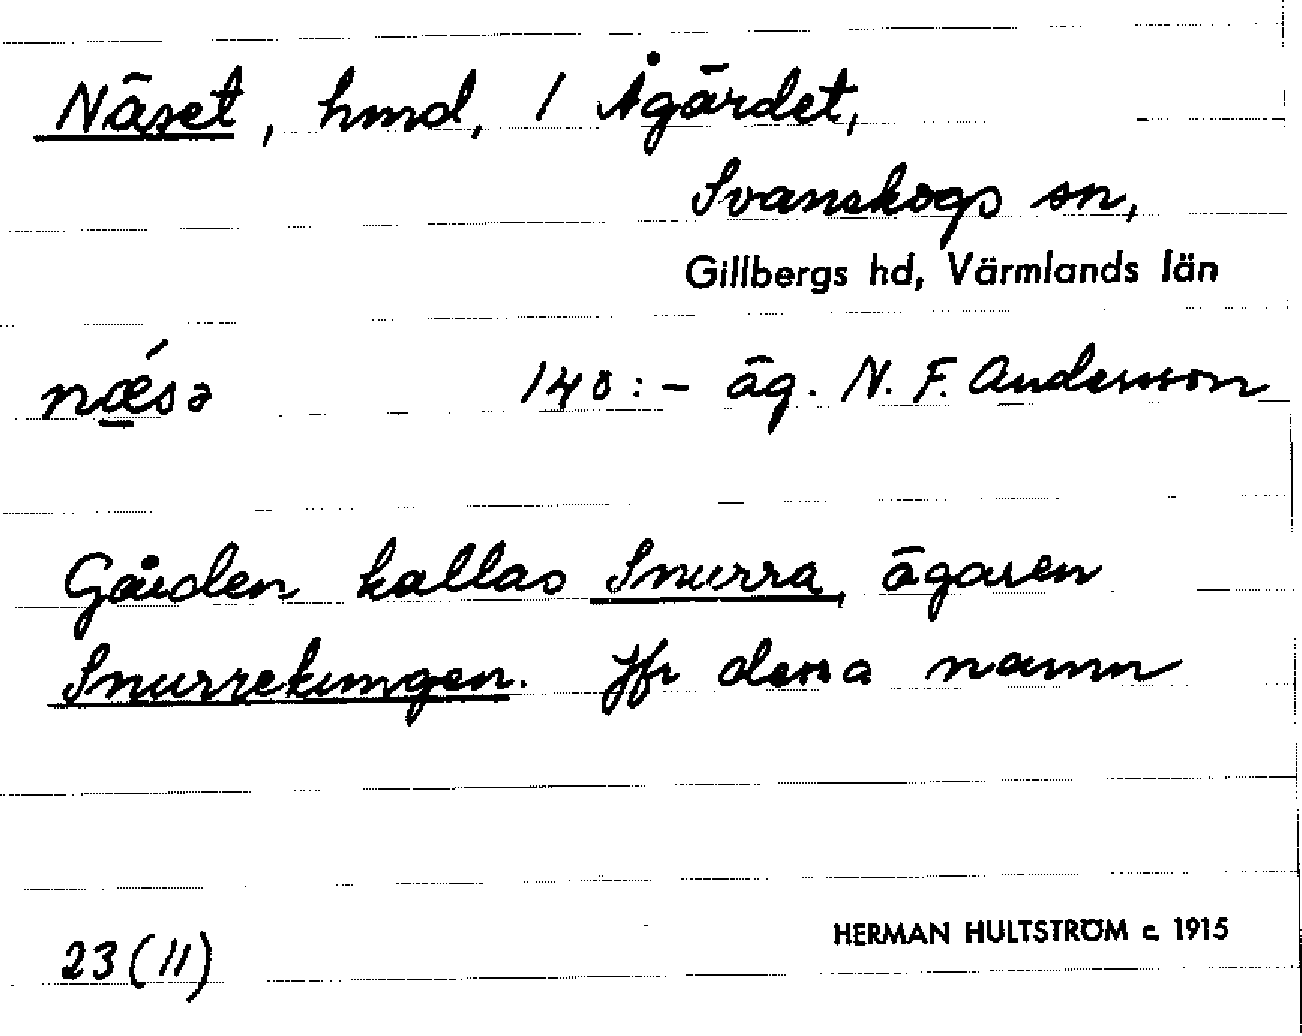 Näset, hmd, 1 Ågärdet,
Svanskogs sn,
Gillbergs hd, Värmlands län
nǽsə 140:- äg. N. F. Andersson
Gården kallas Snurra, ägaren
Snurrekungen. Jfr dessa namn
23(11) HERMAN HULTSTRÖM c. 1915